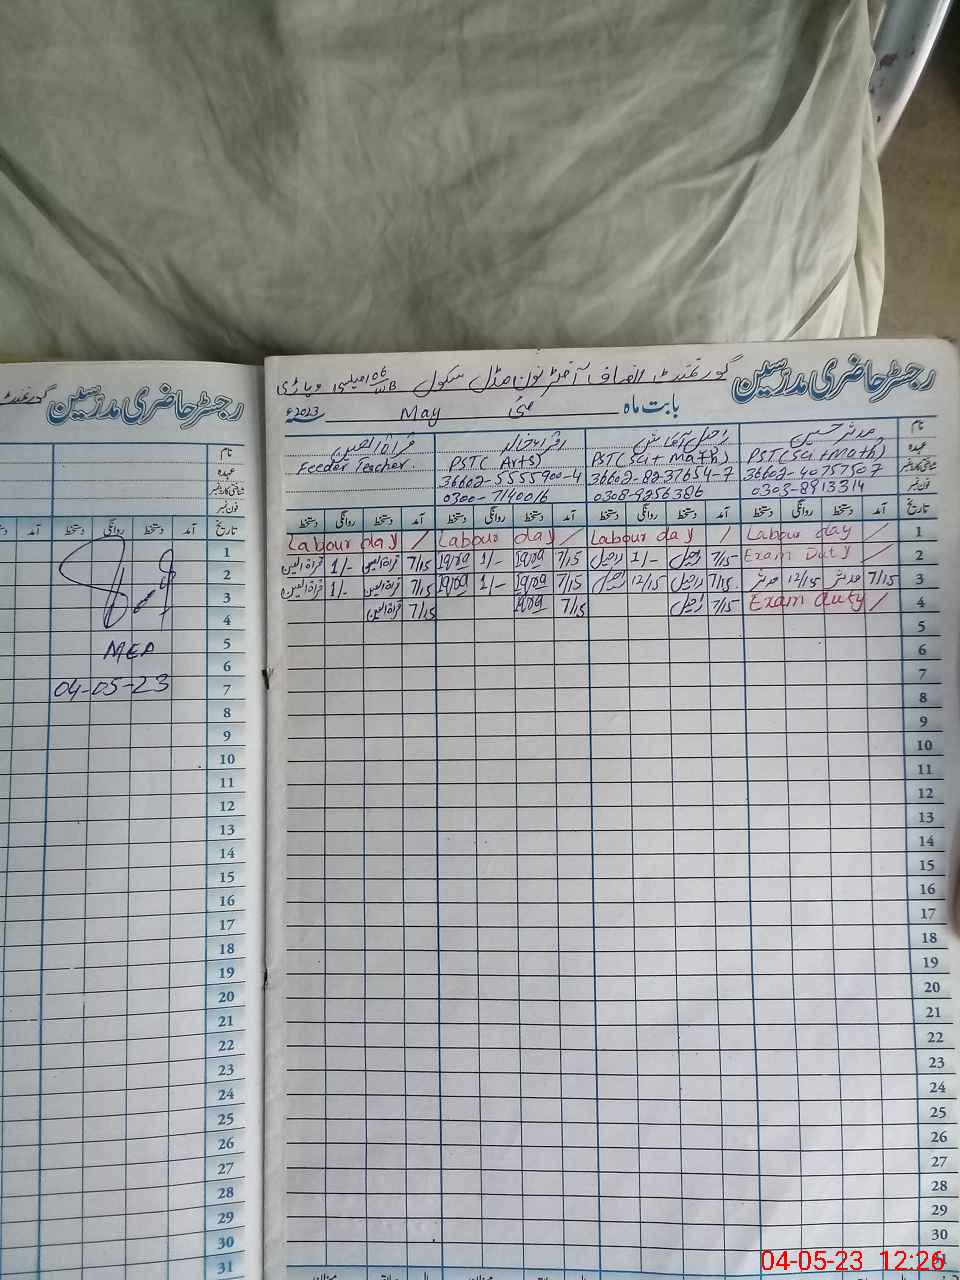 رجسٹر حاضری مدرسین گورنمنٹ انصاف آفٹر نون مڈل سکول 106/WB میلسی وہاڑی
بابت ماہ مئی May 2023ء
نام مدثر حسین
عہدہ PST (Sci + Math) PST (Sci + Math) PST (Arts) Feeder Teacher.
شناختی کارڈ نمبر 36602-4075750-7 36602-8237654-7 36602-5555900-4
فون نمبر 0303-8913314 0308-9256386 0300-7140016
تاریخ آمد دستخط روانگی دستخط آمد دستخط روانگی دستخط آمد دستخط روانگی دستخط آمد دستخط روانگی دستخط
1 Labour day / Labour day / Labour day / Labour day /
2 Exam Duty / 7/15 راحیل 1/- راحیل 7/15 اقراء 1/- اقراء 7/15 قراۃ العین 1/- قراۃ العین
3 7/15 مدثر 12/15 مدثر 7/15 راحیل 12/15 راحیل 7/15 اقراء 1/- اقراء 7/15 قراۃ العین 1/- قراۃ العین
4 Exam duty / 7/15 راحیل 7/15 اقراء 7/15 قراۃ العین
5
6
7
8
9
10
11
12
13
14
15
16
17
18
19
20
21
22
23
24
25
26
27
28
29
30
31
رجسٹر حاضری مدرسین
نام
عہدہ
شناختی کارڈ نمبر
فون نمبر
تاریخ آمد دستخط روانگی دستخط آمد
1
2
3
4
5 MEA
6
7 04-05-23
8
9
10
11
12
13
14
15
16
17
18
19
20
21
22
23
24
25
26
27
28
29
30
31
04-05-23 12:26